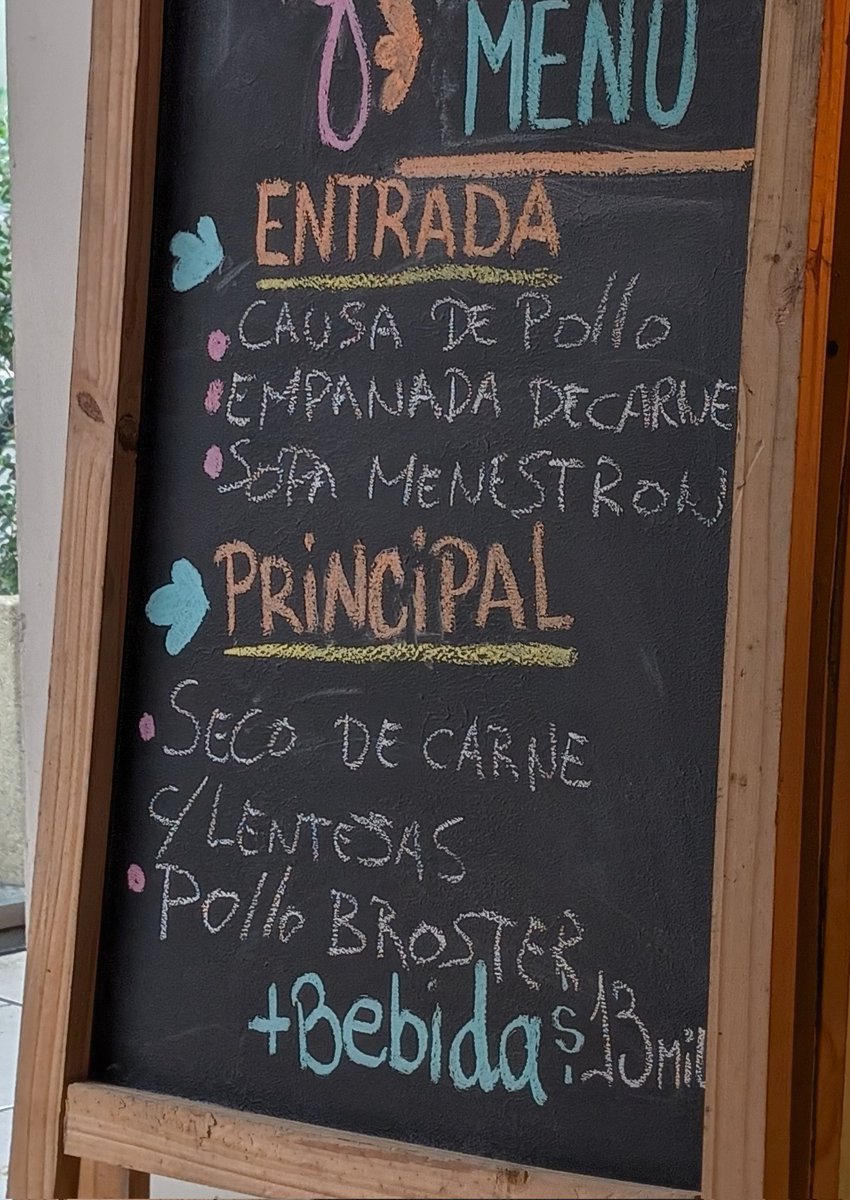 MENÚ
ENTRADA
CAUSA DE Pollo
EMPANADA DE CARNE
SOPA MENESTRON
PRINCIPAL
SECO DE CARNE
C/LENTEJAS
Pollo BROSTER
+Bebida $13 Mil